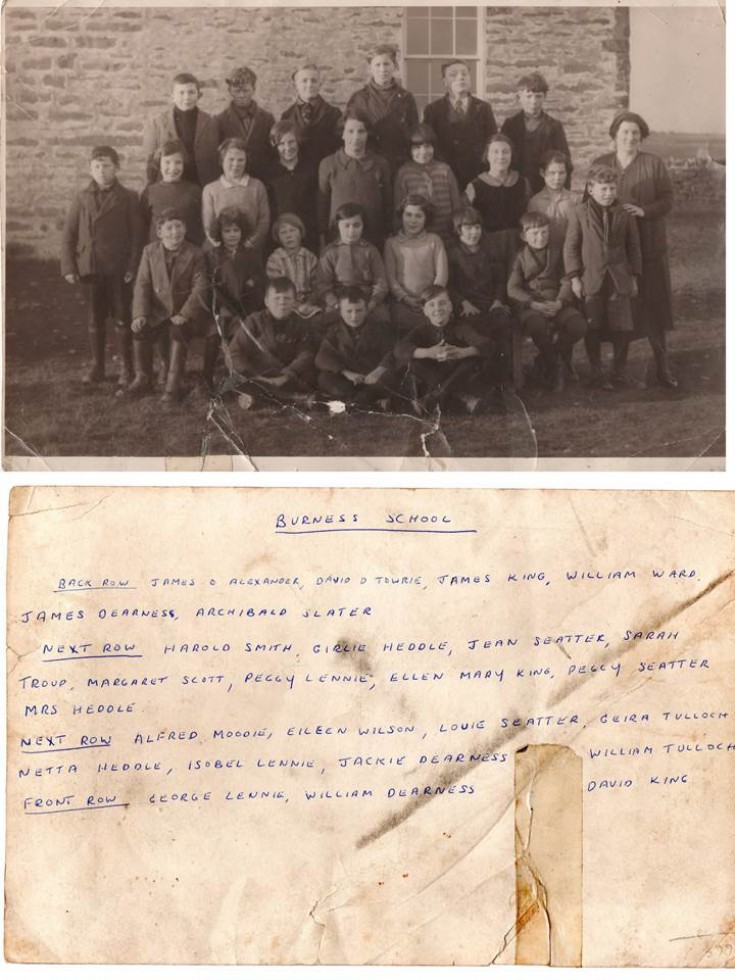 BURNESS SCHOOL
BACK ROW JAMES O ALEXANDER, DAVID D TOWRIE, JAMES KING, WILLIAM WARD,
JAMES DEARNESS, ARCHIBALD SLATER
NEXT ROW HAROLD SMITH, GIRLIE HEDDLE, JEAN SEATTER, SARAH
TROUP, MARGARET SCOTT, PEGGY LENNIE, ELLEN MARY KING, PEGGY SEATTER
MRS HEDDLE
NEXT ROW ALFRED MOODIE, EILEEN WILSON, LOUIE SEATTER, GEIRA TULLOCH
NETTA HEDDLE, ISOBEL LENNIE, JACKIE DEARNESS WILLIAM TULLOCH
FRONT ROW GEORGE LENNIE, WILLIAM DEARNESS DAVID KING